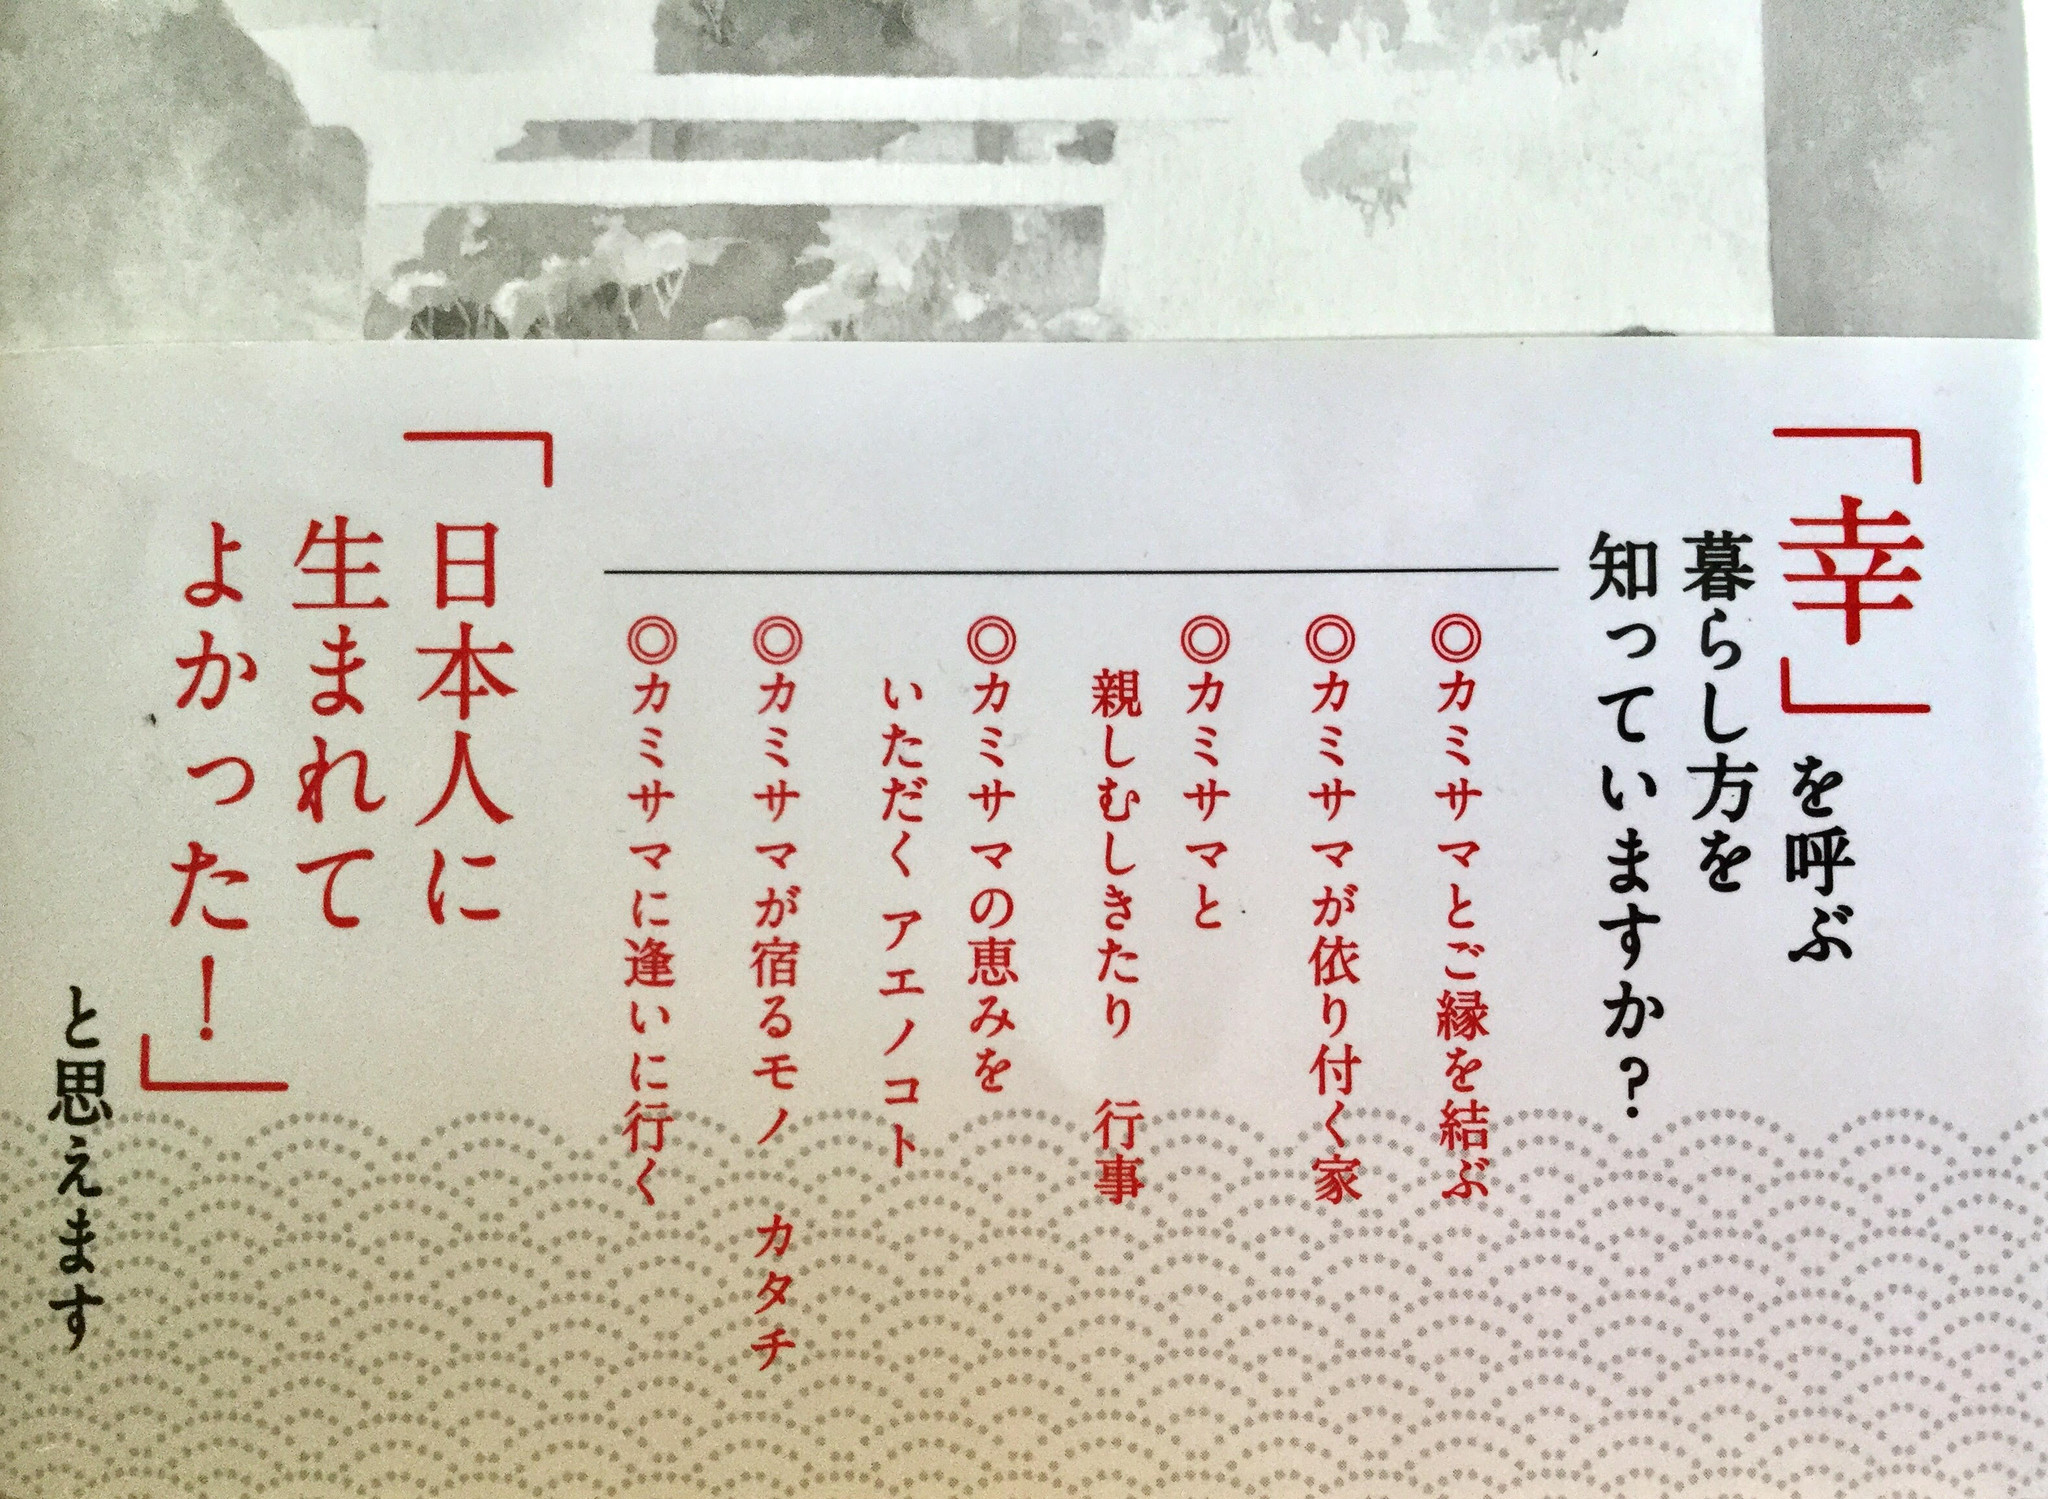 「幸」を呼ぶ
暮らし方を
知っていますか?
◎カミサマとご縁を結ぶ
◎カミサマが依り付く家
◎カミサマと
親しむしきたり　行事
◎カミサマの恵みを
いただく アエノコト
◎カミサマが宿るモノ　カタチ
◎カミサマに逢いに行く
「日本人に
生まれて
よかった!」
と思えます